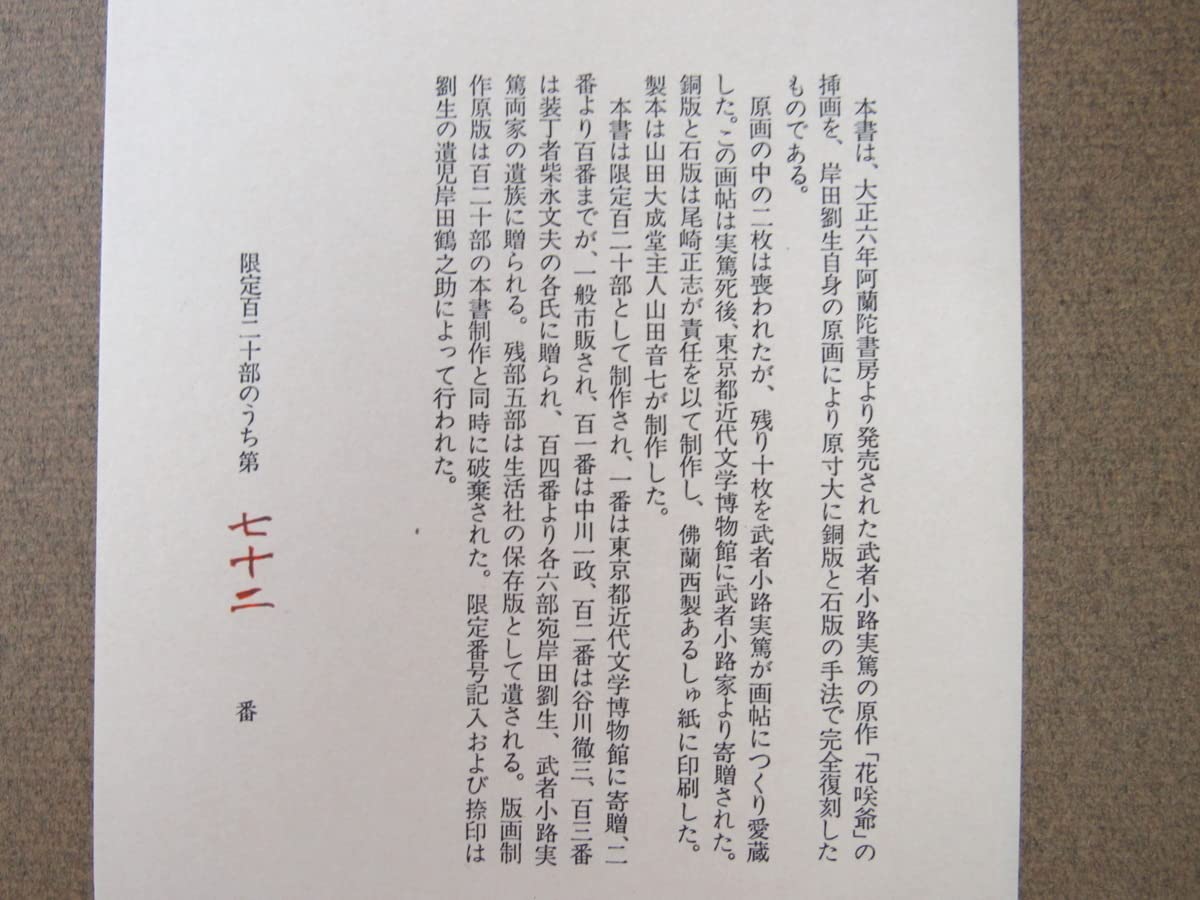 本書は、大正六年阿蘭陀書房より発売された武者小路実篤の原作「花咲爺」の
挿画を、岸田劉生自身の原画により原寸大に銅版と石版の手法で完全復刻した
ものである。
原画の中の二枚は喪われたが、残り十枚を武者小路実篤が画帖につくり愛蔵
した。この画帖は実篤死後、東京都近代文学博物館に武者小路家より寄贈された。
銅版と石版は尾崎正志が責任を以て制作し、佛蘭西製あるしゅ紙に印刷した。
製本は山田大成堂主人山田音七が制作した。
本書は限定百二十部として制作され、一番は東京都近代文学博物館に寄贈、二
番より百番までが、一般市販され、百一番は中川一政、百二番は谷川徹三、百三番
は装丁者柴永文夫の各氏に贈られ、百四番より各六部宛岸田劉生、武者小路実
篤両家の遺族に贈られる。残部五部は生活社の保存版として遺される。版画制
作原版は百二十部の本書制作と同時に破棄された。限定番号記入および捺印は
劉生の遺児岸田鶴之助によって行われた。
限定百二十部のうち第 七十二 番